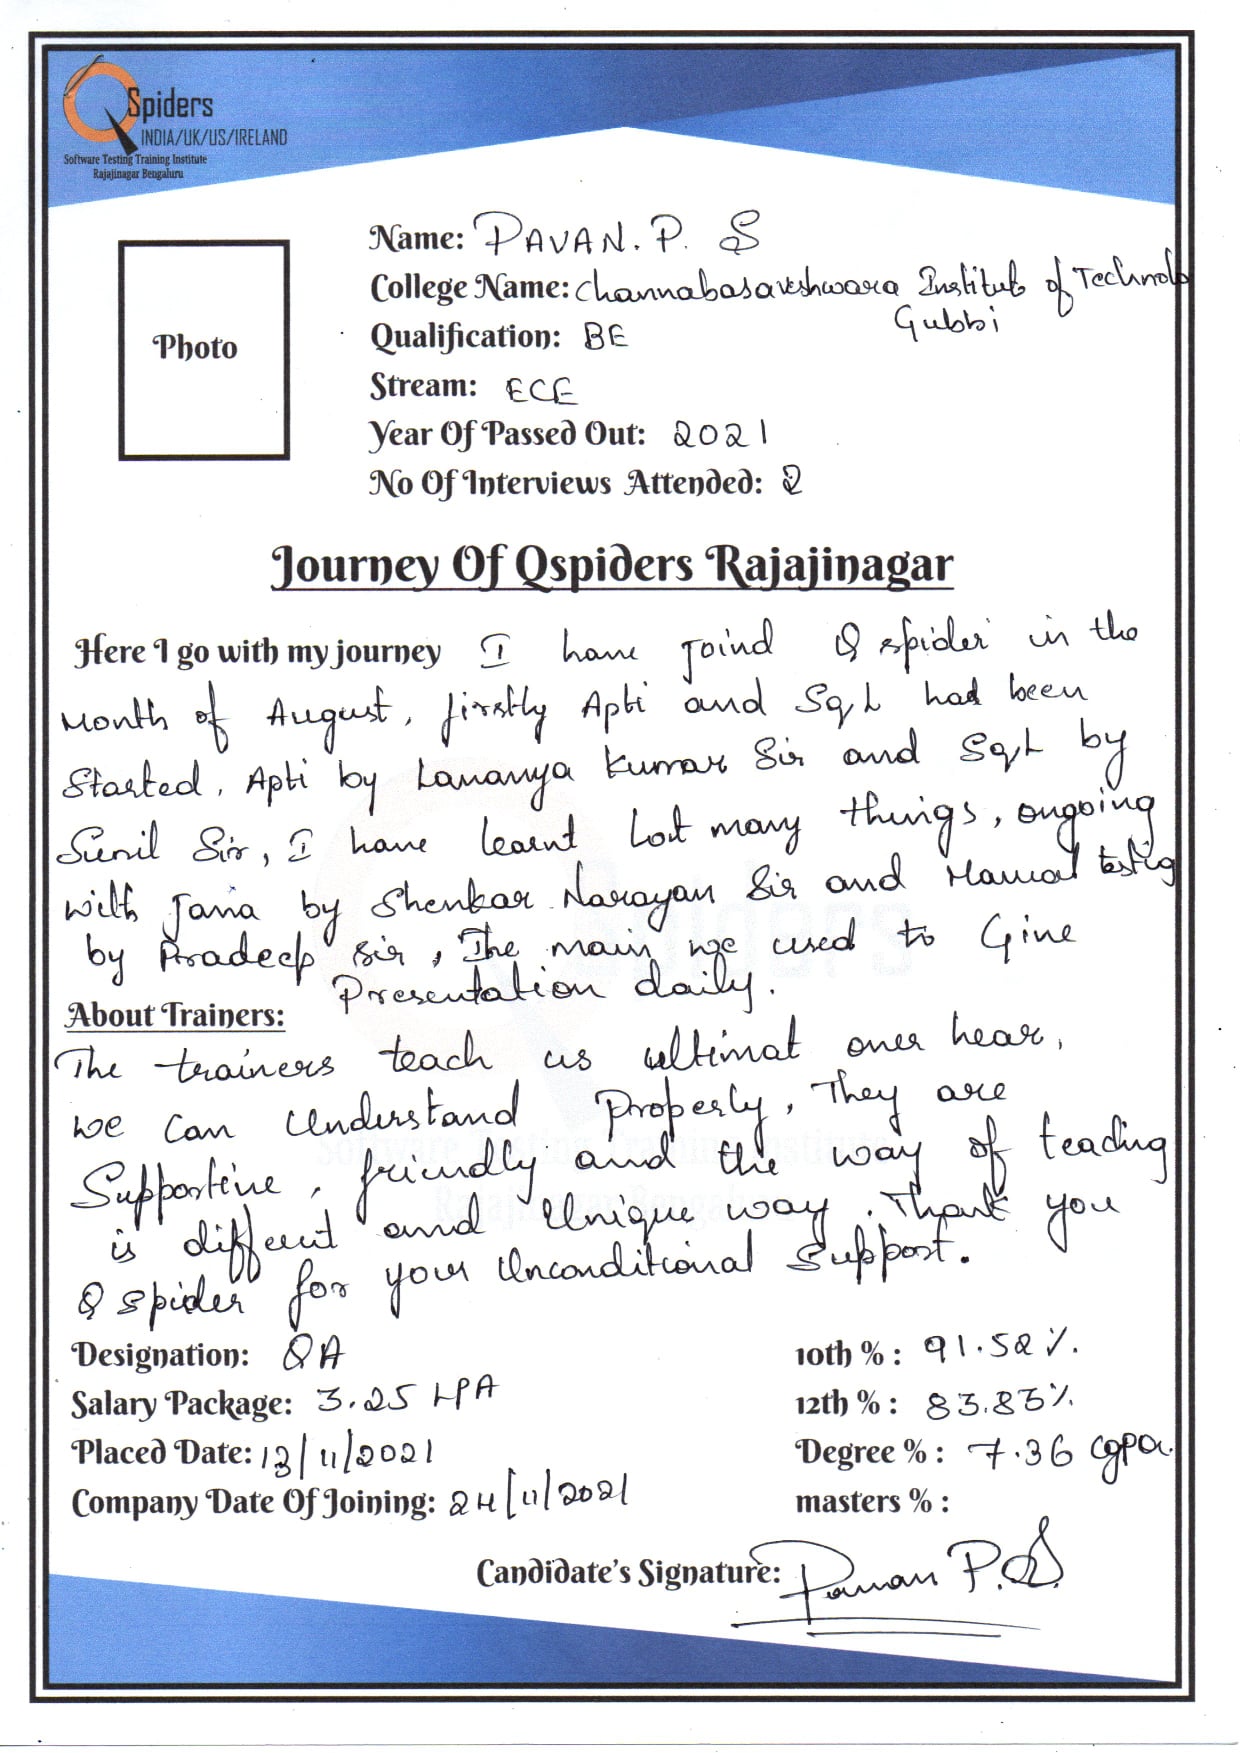 QSpiders
INDIA/UK/US/IRELAND
Software Testing Training Institute
Rajajinagar Bengaluru
Photo
Name: PAVAN. P. S
College Name: Channabasaveshwara Institute of Technolo
Gubbi
Qualification: BE
Stream: ECE
Year Of Passed Out: 2021
No Of Interviews Attended: 2
Journey Of Qspiders Rajajinagar
Here I go with my journey I have Joind Q spider in the
Month of August, firstly Apti and SqL had been
Started, Apti by Lavanya Kumar Sir and SqL by
Sunil Sir, I have learnt Lot many things, ongoing
with Java by Shenkar Narayan Sir and Manual testig
by Pradeep Sir, The main we used to Give
Presentation daily.
About Trainers:
The trainers teach us ultimat over hear,
we can Understand Properly, They are
Supportive, friendly and the way of teading
is different and Unique way. Thank you
Q spider for your Unconditional Support.
Designation: QA
Salary Package: 3.25 LPA
Placed Date: 13/11/2021
Company Date Of Joining: 24/11/2021
10th % : 91.52 %.
12th % : 83.83%
Degree % : 7.36 cgpa.
masters % :
Candidate's Signature: Pavan P.S.
Spiders
Software Testing Training Institute
Rajajinagar Bengaluru